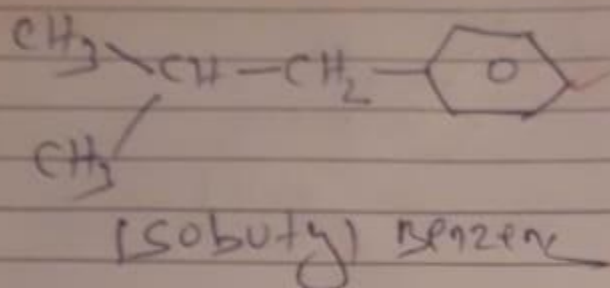 CH3
CH—CH2—
CH3
Isobutyl Benzene